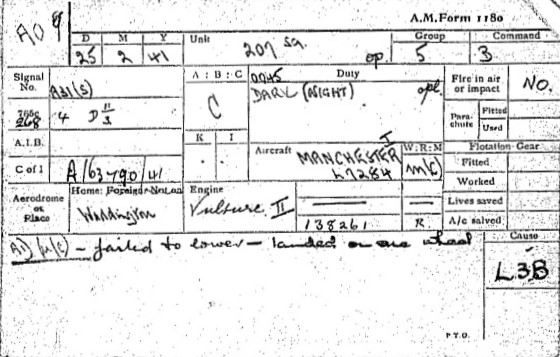 A.M. Form 1180
A09
D M Y Unit Group Command
25 2 41 207 Sq. op. 5 3
Signal No. A31(S)
A : B : C
C
0045 Duty
DARK (NIGHT) opl.
Fire in air or impact NO.
Para-chute Fitted
Used
765c
268 4 D 11/3
A.I.B.
K I
. .
Aircraft MANCHESTER I
L7284
W : R : M
M/C
Flotation Gear
Fitted
Worked
C of I A/63790/41
Aerodrome or Place
Home: Foreign: Not an
Waddington
Engine
Vulture II
138261 R.
Lives saved
A/c salved
A1) U/C) - failed to lower - landed on one wheel
Cause
L3B
P.T.O.